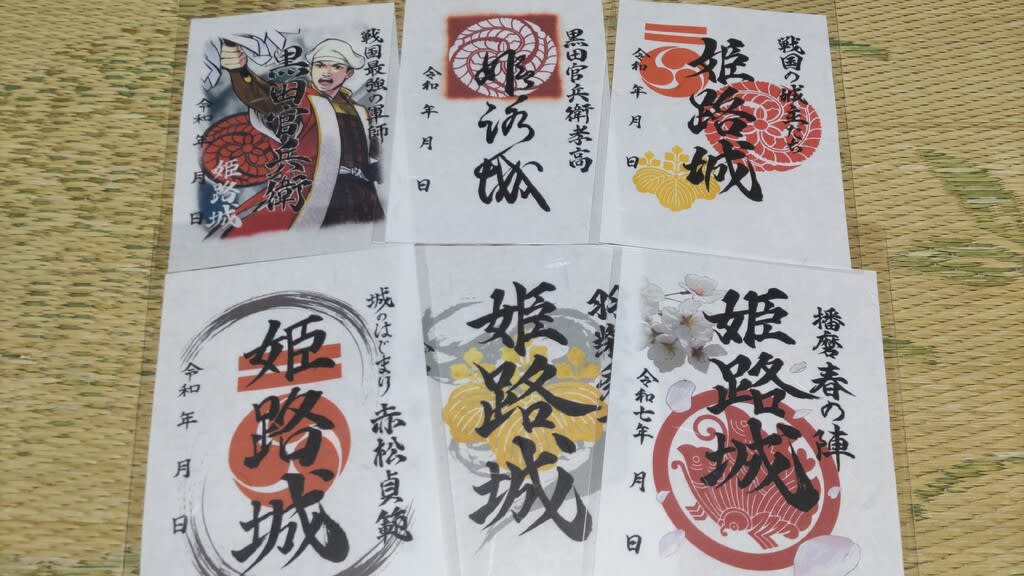 戦国最強の軍師
黒田官兵衛
姫路城
令和 年 月 日
黒田官兵衛孝高
姫路城
令和 年 月 日
戦国の城主たち
姫路城
令和 年 月 日
城のはじまり 赤松貞範
姫路城
令和 年 月 日
姫路城
播磨春の陣
姫路城
令和七年 月 日